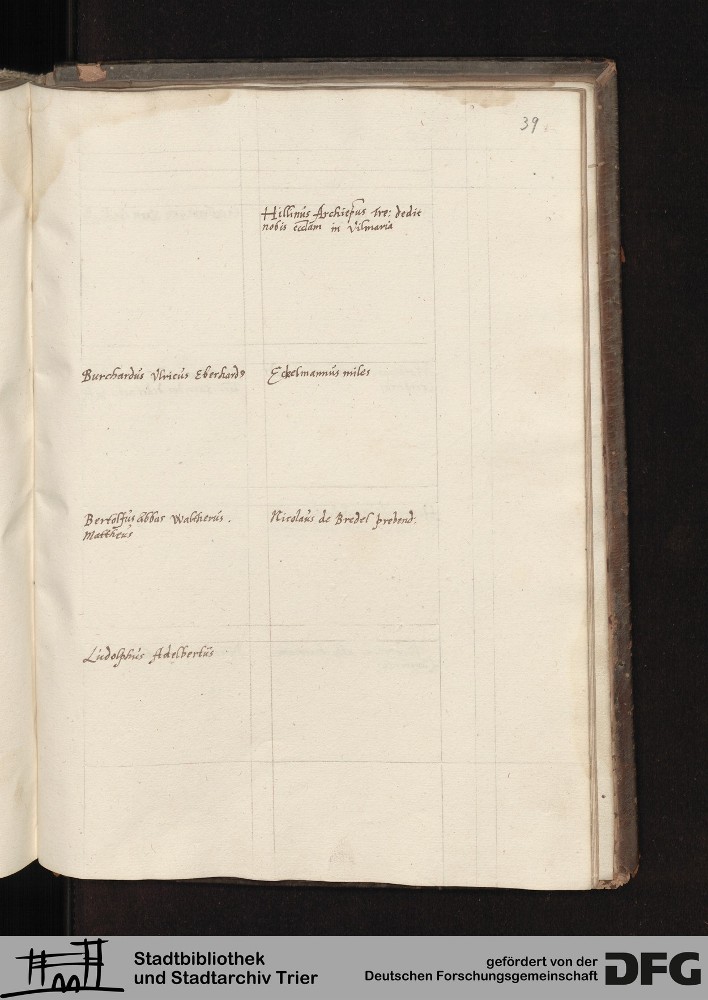 39
Hillinus Archiepus tre: dedit
nobis eccłam in Vilmaria
Burchardus Vlricus Eberhard9
Eckelmannus miles
Bertolfus abbas Waltherus.
Mattheus
Nicolaus de Bredel prebend.
Ludolphus Adelbertus
Stadtbibliothek
und Stadtarchiv Trier
gefördert von der
Deutschen Forschungsgemeinschaft
DFG